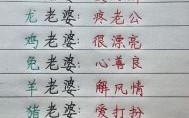 龙老婆：疼老公
鸡老婆：很漂亮
兔老婆：心善良
羊老婆：解风情
猪老婆：爱打扮